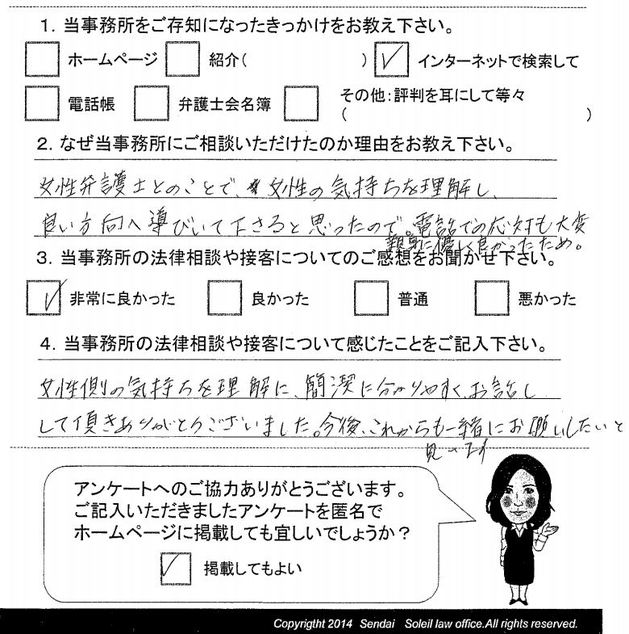 1. 当事務所をご存知になったきっかけをお教え下さい。
ホームページ 紹介( ) ✓ インターネットで検索して
電話帳 弁護士会名簿 その他:評判を耳にして等々
( )
2. なぜ当事務所にご相談いただけたのか理由をお教え下さい。
女性弁護士とのことで、女性の気持ちを理解し、
良い方向へ導びいて下さると思ったので。電話での応対も大変
親身に優しく良かったため。
3. 当事務所の法律相談や接客についてのご感想をお聞かせ下さい。
✓ 非常に良かった 良かった 普通 悪かった
4. 当事務所の法律相談や接客について感じたことをご記入下さい。
女性側の気持ちを理解に、簡潔に分かりやすく、お話し
して頂きありがとうございました。今後、これからも一緒にお願いしたいと
アンケートへのご協力ありがとうございます。
ご記入いただきましたアンケートを匿名で
ホームページに掲載しても宜しいでしょうか?
✓ 掲載してもよい
Copyright 2014 Sendai Soleil law office.All rights reserved.